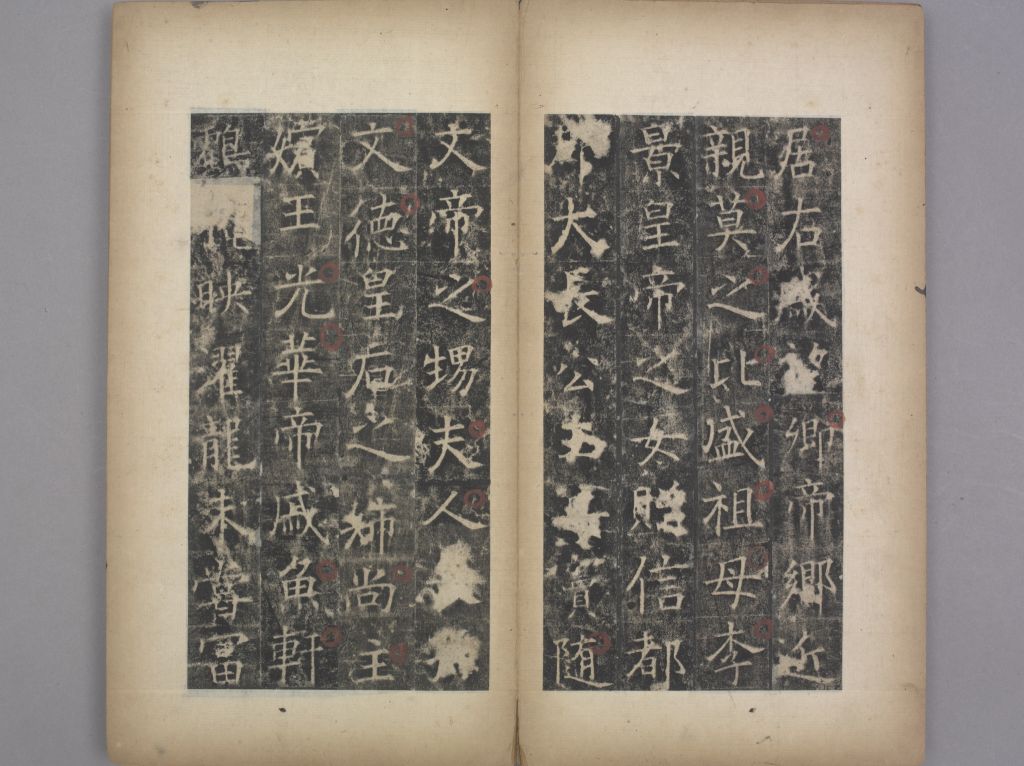 居右戚卿帝鄉近
親莫之比盛祖母李
景皇帝之女贈信都
大長公主賞隨
文帝之甥夫人
文徳皇后之姉尚主
嬪王光華帝戚魚軒
映濯龍未富